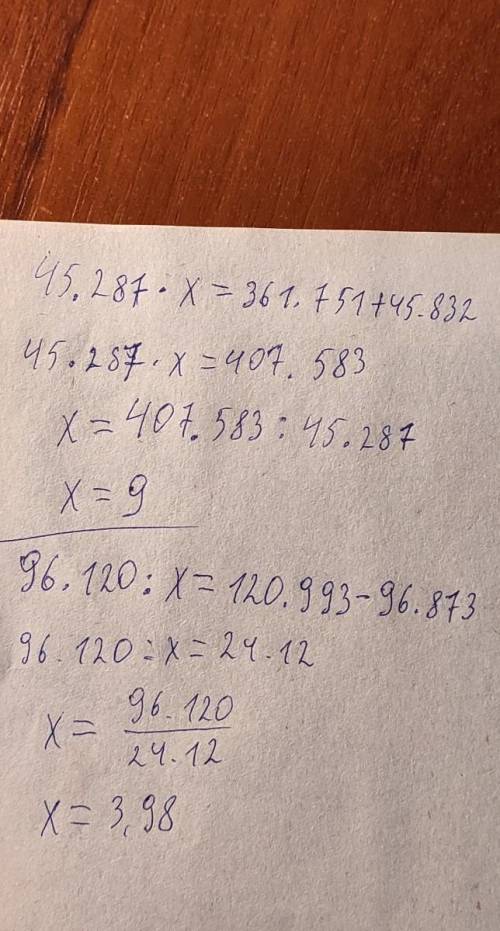 45.287 · x = 361.751 + 45.832
45.287 · x = 407.583
x = 407.583 : 45.287
x = 9
96.120 : x = 120.993 - 96.873
96.120 : x = 24.12
x = 96.120 / 24.12
x = 3,98